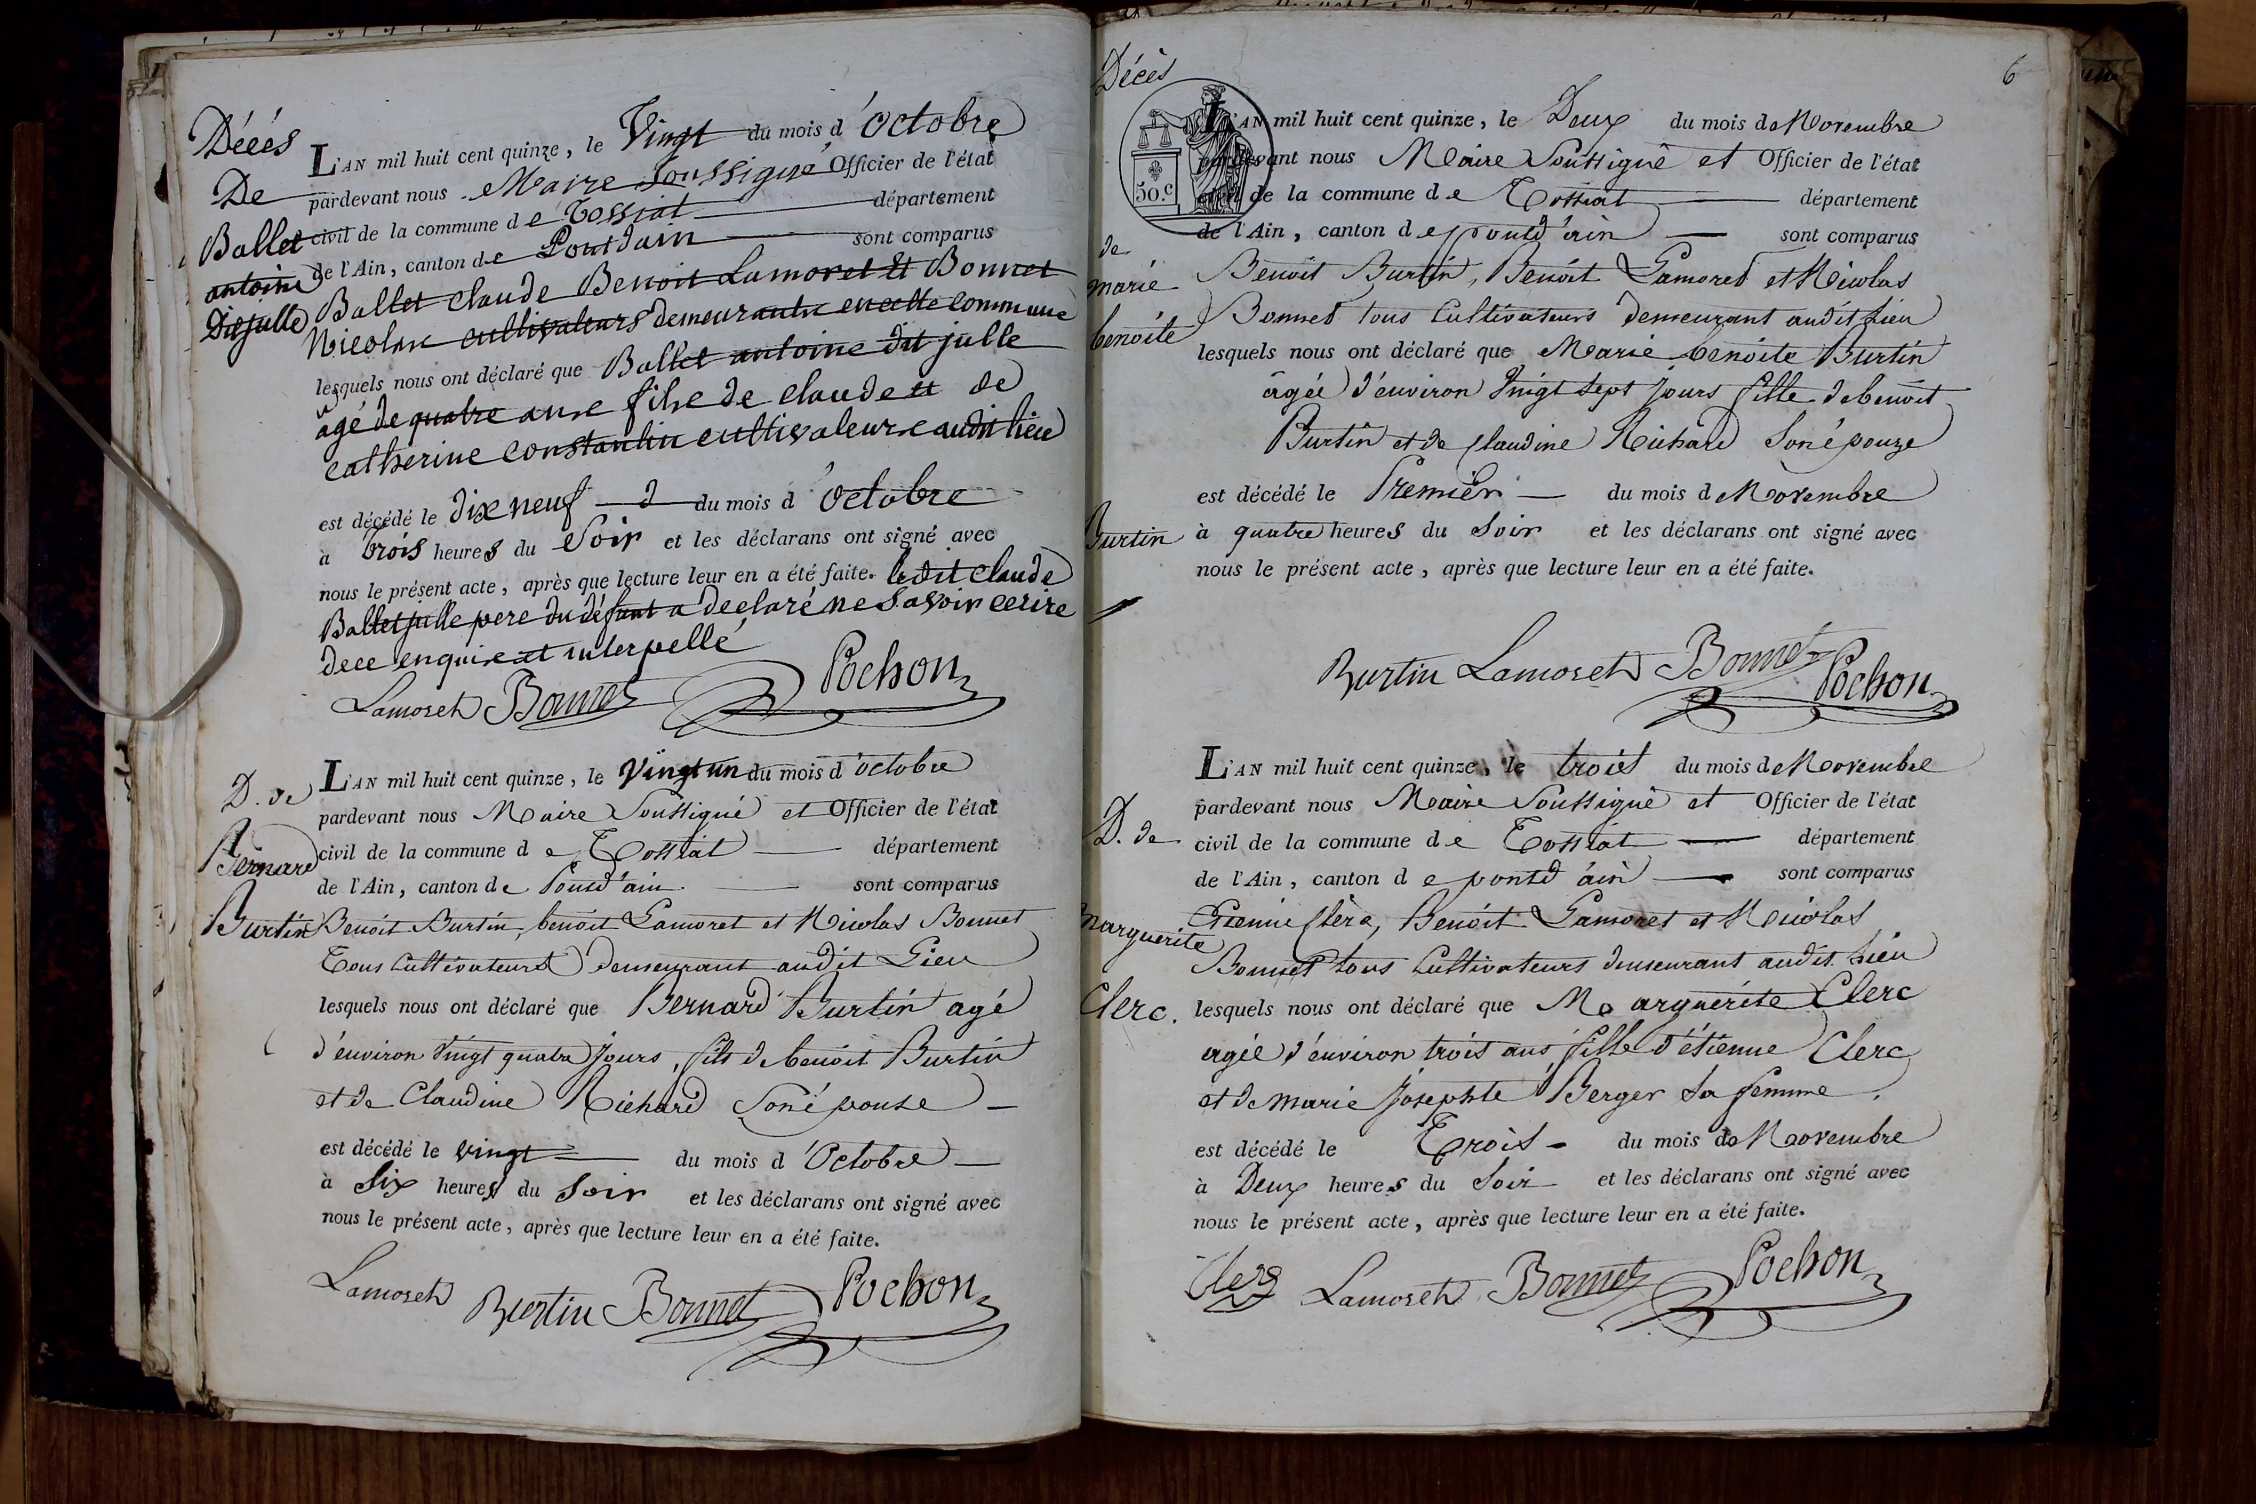 Décés
De
Ballet
antoine
Dit julle
L'AN mil huit cent quinze, le Vingt du mois d'Octobre
pardevant nous Maire Soussigné Officier de l'état
civil de la commune de Tossiat département
de l'Ain, canton de Pontdain sont comparus
Ballet Claude Benoit Lamoret Et Bonnet
Nicolas cultivateurs demeurants en cette commune
lesquels nous ont déclaré que Ballet antoine dit julle
agé de quatre ans fils de claude et de
catherine constantin cultivateurs audit lieu
est décédé le dix neuf du mois d'Octobre
à trois heures du Soir et les déclarans ont signé avec
nous le présent acte, après que lecture leur en a été faite. ledit Claude
Ballet julle pere du défunt a declaré ne Savoir ecrire
de ce enquis et interpellé
Lamoret Bonnet Pochon
D. de
Bernard
Burtin
L'AN mil huit cent quinze, le Vingt un du mois d'octobre
pardevant nous Maire Soussigné et Officier de l'état
civil de la commune de Tossiat département
de l'Ain, canton de Pontd'ain sont comparus
Benoit Burtin, benoit Lamoret et Nicolas Bonnet
Tous Cultivateurs demeurant audit Lieu
lesquels nous ont déclaré que Bernard Burtin agé
d'environ Vingt quatre jours, fils de benoit Burtin
et de Claudine Richard Son épouse
est décédé le vingt du mois d'Octobre
à Six heures du Soir et les déclarans ont signé avec
nous le présent acte, après que lecture leur en a été faite.
Lamoret Burtin Bonnet Pochon
6
Décès
de
marie
benoite
Burtin
50.c
L'AN mil huit cent quinze, le Deux du mois de Novembre
pardevant nous Maire Soussigné et Officier de l'état
civil de la commune de Tossiat département
de l'Ain, canton de pontd'ain sont comparus
Benoit Burtin, Benoit Lamoret et Nicolas
Bonnet tous Cultivateurs demeurant audit Lieu
lesquels nous ont déclaré que Marie benoite Burtin
âgée d'environ Vingt Sept jours fille de benoit
Burtin et de Claudine Richard Son épouze
est décédé le Premier du mois de Novembre
à quatre heures du Soir et les déclarans ont signé avec
nous le présent acte, après que lecture leur en a été faite.
Burtin Lamoret Bonnet Pochon
D. de
Marguerite
Clerc.
L'AN mil huit cent quinze, le trois du mois de Novembre
pardevant nous Maire Soussigné et Officier de l'état
civil de la commune de Tossiat département
de l'Ain, canton de pontd'ain sont comparus
Etienne Clerc, Benoit Lamoret et Nicolas
Bonnet tous Cultivateurs demeurant audit Lieu
lesquels nous ont déclaré que Marguerite Clerc
agée d'environ trois ans fille d'étienne Clerc
et de marie josephte Berger Sa femme.
est décédé le Trois du mois de Novembre
à Deux heures du Soir et les déclarans ont signé avec
nous le présent acte, après que lecture leur en a été faite.
Clerc Lamoret Bonnet Pochon